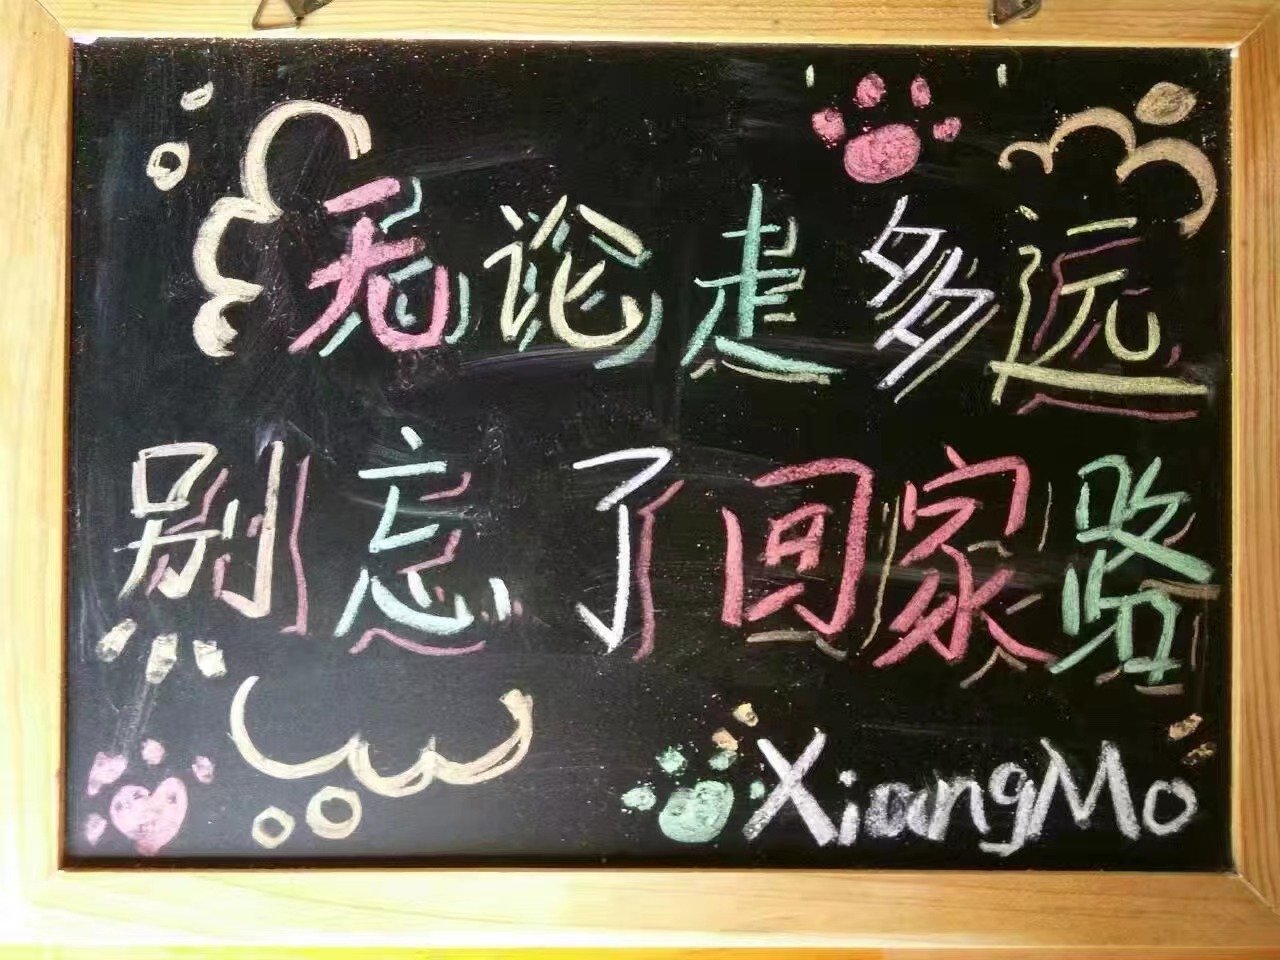 无论走多远
别忘了回家路
XiangMo